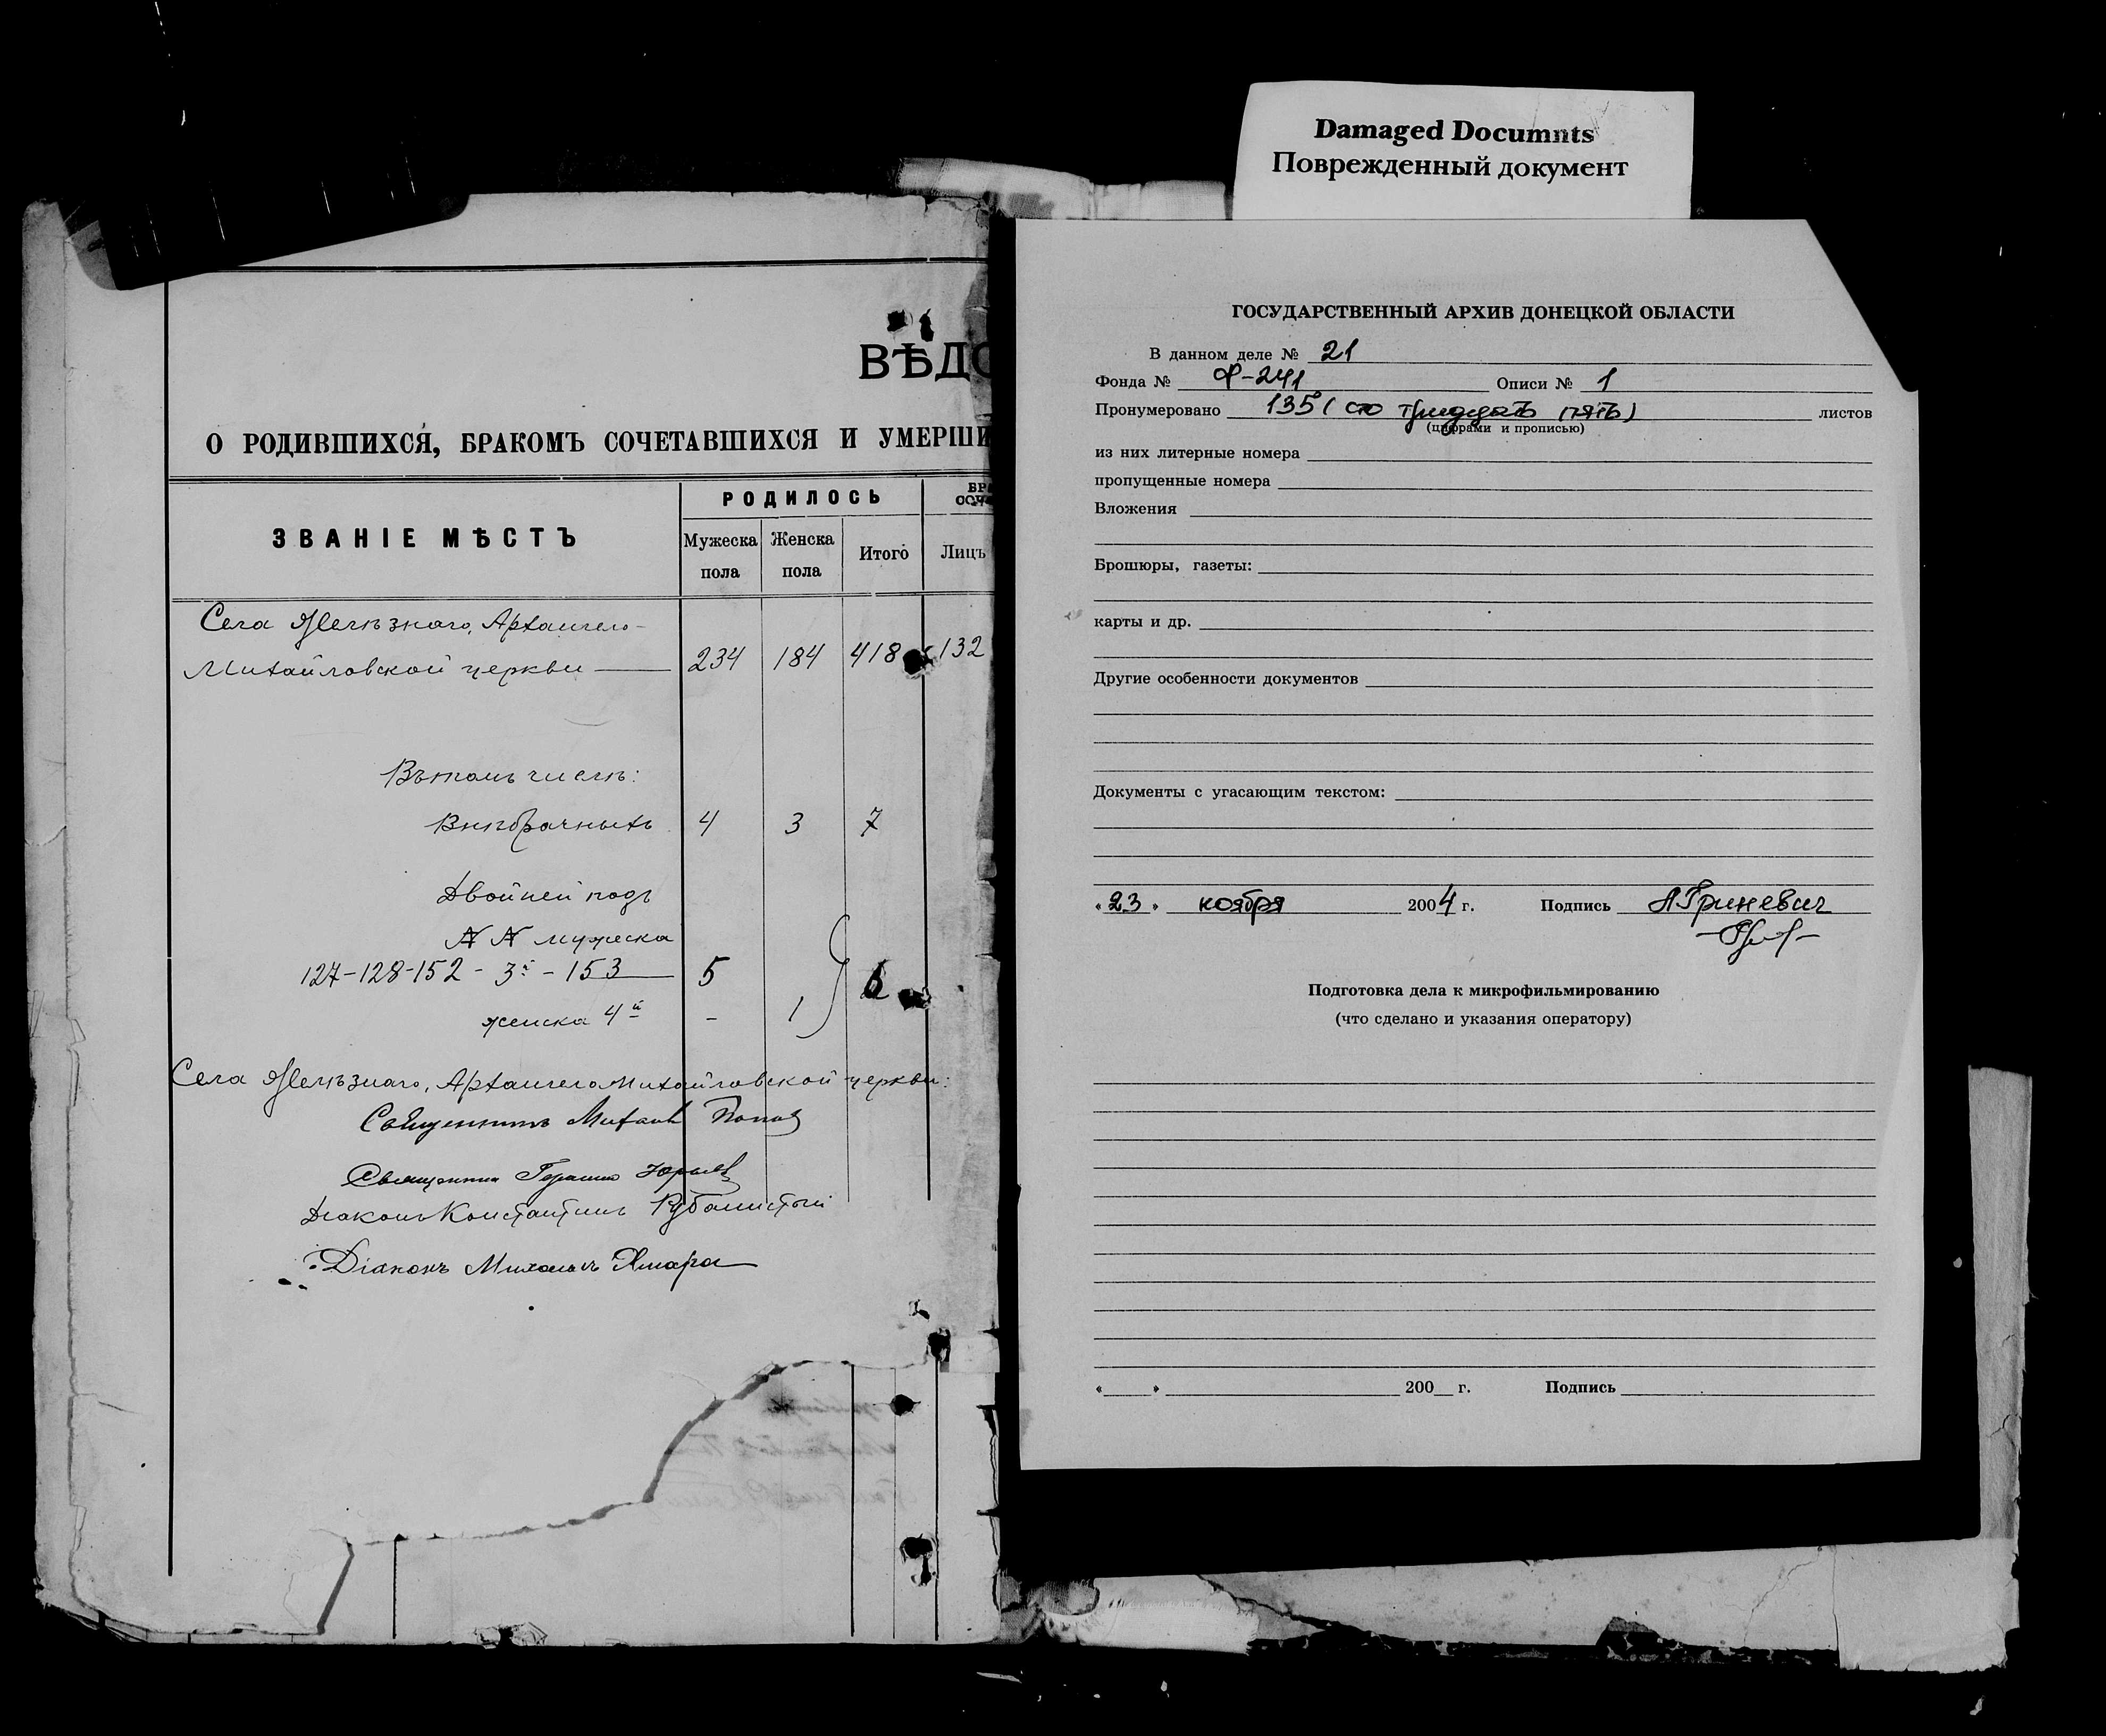 Damaged Documnts
Поврежденный документ
ВѢДО
О РОДИВШИХСЯ, БРАКОМЪ СОЧЕТАВШИХСЯ И УМЕРШИ
ЗВАНІЕ МѢСТЪ
РОДИЛОСЬ
Мужеска пола
Женска пола
Итого
Лицъ
Села Желѣзнаго, Архангело-
Михайловской церкви 234 184 418 132
Въ томъ числѣ:
Внѣбрачныхъ 4 3 7
Двойней подъ
№ № мужеска
127-128-152 - 3й - 153 5 6
женска 4й - 1
Села Желѣзнаго, Архангело Михайловской церкви:
Священникъ Михаилъ Попов
Священникъ Юрьевъ
Діаконъ Константинъ
Діаконъ Михаилъ
ГОСУДАРСТВЕННЫЙ АРХИВ ДОНЕЦКОЙ ОБЛАСТИ
В данном деле № 21
Фонда № Ф-241 Описи № 1
Пронумеровано 135 (сто тридцать пять) листов
(цифрами и прописью)
из них литерные номера
пропущенные номера
Вложения
Брошюры, газеты:
карты и др.
Другие особенности документов
Документы с угасающим текстом:
«23» ноября 2004 г. Подпись А Гриневич
Подготовка дела к микрофильмированию
(что сделано и указания оператору)
« » 200 г. Подпись